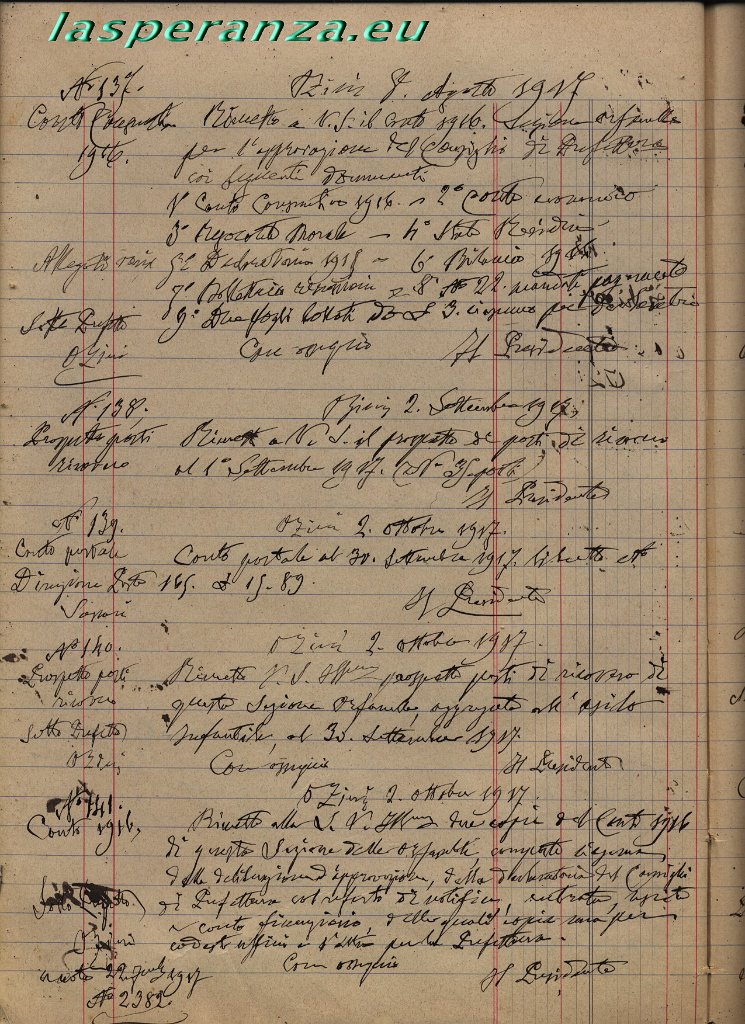 lasperanza.eu
Nº 137. Ozieri 8. Agosto 1917
Conto Consuntivo Rimetto a V. S. il Conto 1916. Sezione Orfanelle
1916. per l'approvazione del Consiglio di Prefettura
coi seguenti documenti
1º Conto Consuntivo 1916. 2º Conto economico
3º Resoconto Morale 4º Stato Residui
Allegati varii 5º 1915 6º Bilancio
7º 8º Nº 22 mandati pagamento
Sotto Prefetto 9º Due fogli bollati da £ 3.
Ozieri Con ossequio Il Presidente
Nº 138. Ozieri 2. Settembre 1917.
Prospetto posti Rimetto a V. S. il prospetto dei posti di ricovero
ricovero al 1º Settembre 1917.
Il Presidente
Nº 139. Ozieri 2. Ottobre 1917.
Conto postale Conto postale al 30. Settembre 1917. libretto
Direzione Poste 165. £ 15.89.
Sassari Il Presidente
Nº 140. Ozieri 2. Ottobre 1917.
Prospetto posti Rimetto V. S. Illma prospetto posti di ricovero di
ricovero questa Sezione Orfanelle, aggregata all'asilo
Sotto Prefetto Infantile, al 30. Settembre 1917.
Ozieri Con ossequio Il Presidente
Nº 141. Ozieri 2. Ottobre 1917.
Conto 1916, Rimetto alla S. V. Illma due copie del Conto 1916
di questa Sezione delle Orfanelle
della deliberazione d'approvazione, della del Consiglio
Sotto Prefetto di Prefettura col referto di notifica, entrata, uscita
e conto finanziario, delle quali copia una per
Ozieri codesto ufficio e l'altra per la Prefettura.
1917 Con ossequio Il Presidente
Nº 2382.